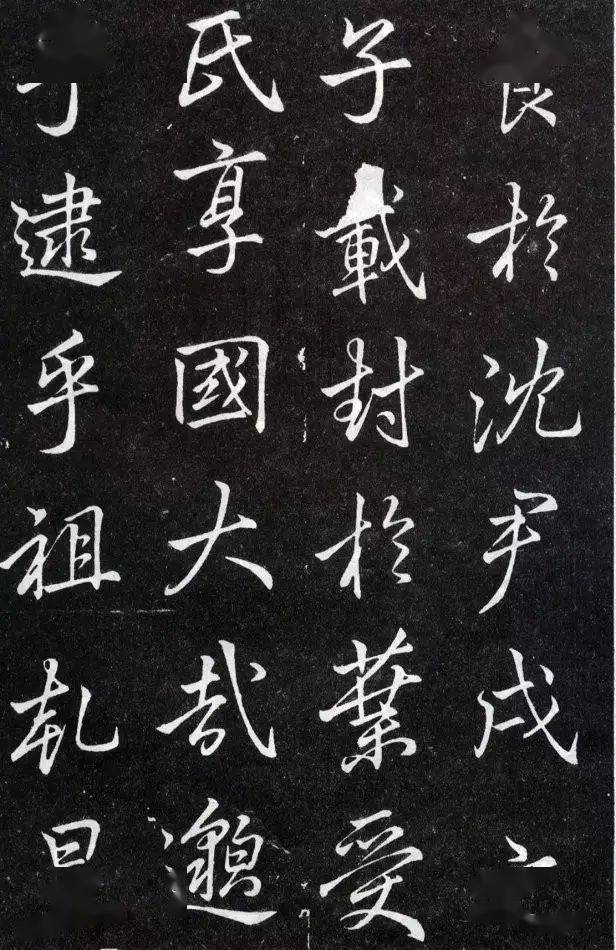 於沈尹戌
子載封於葉受
氏享國大哉邈
逮乎祖乹